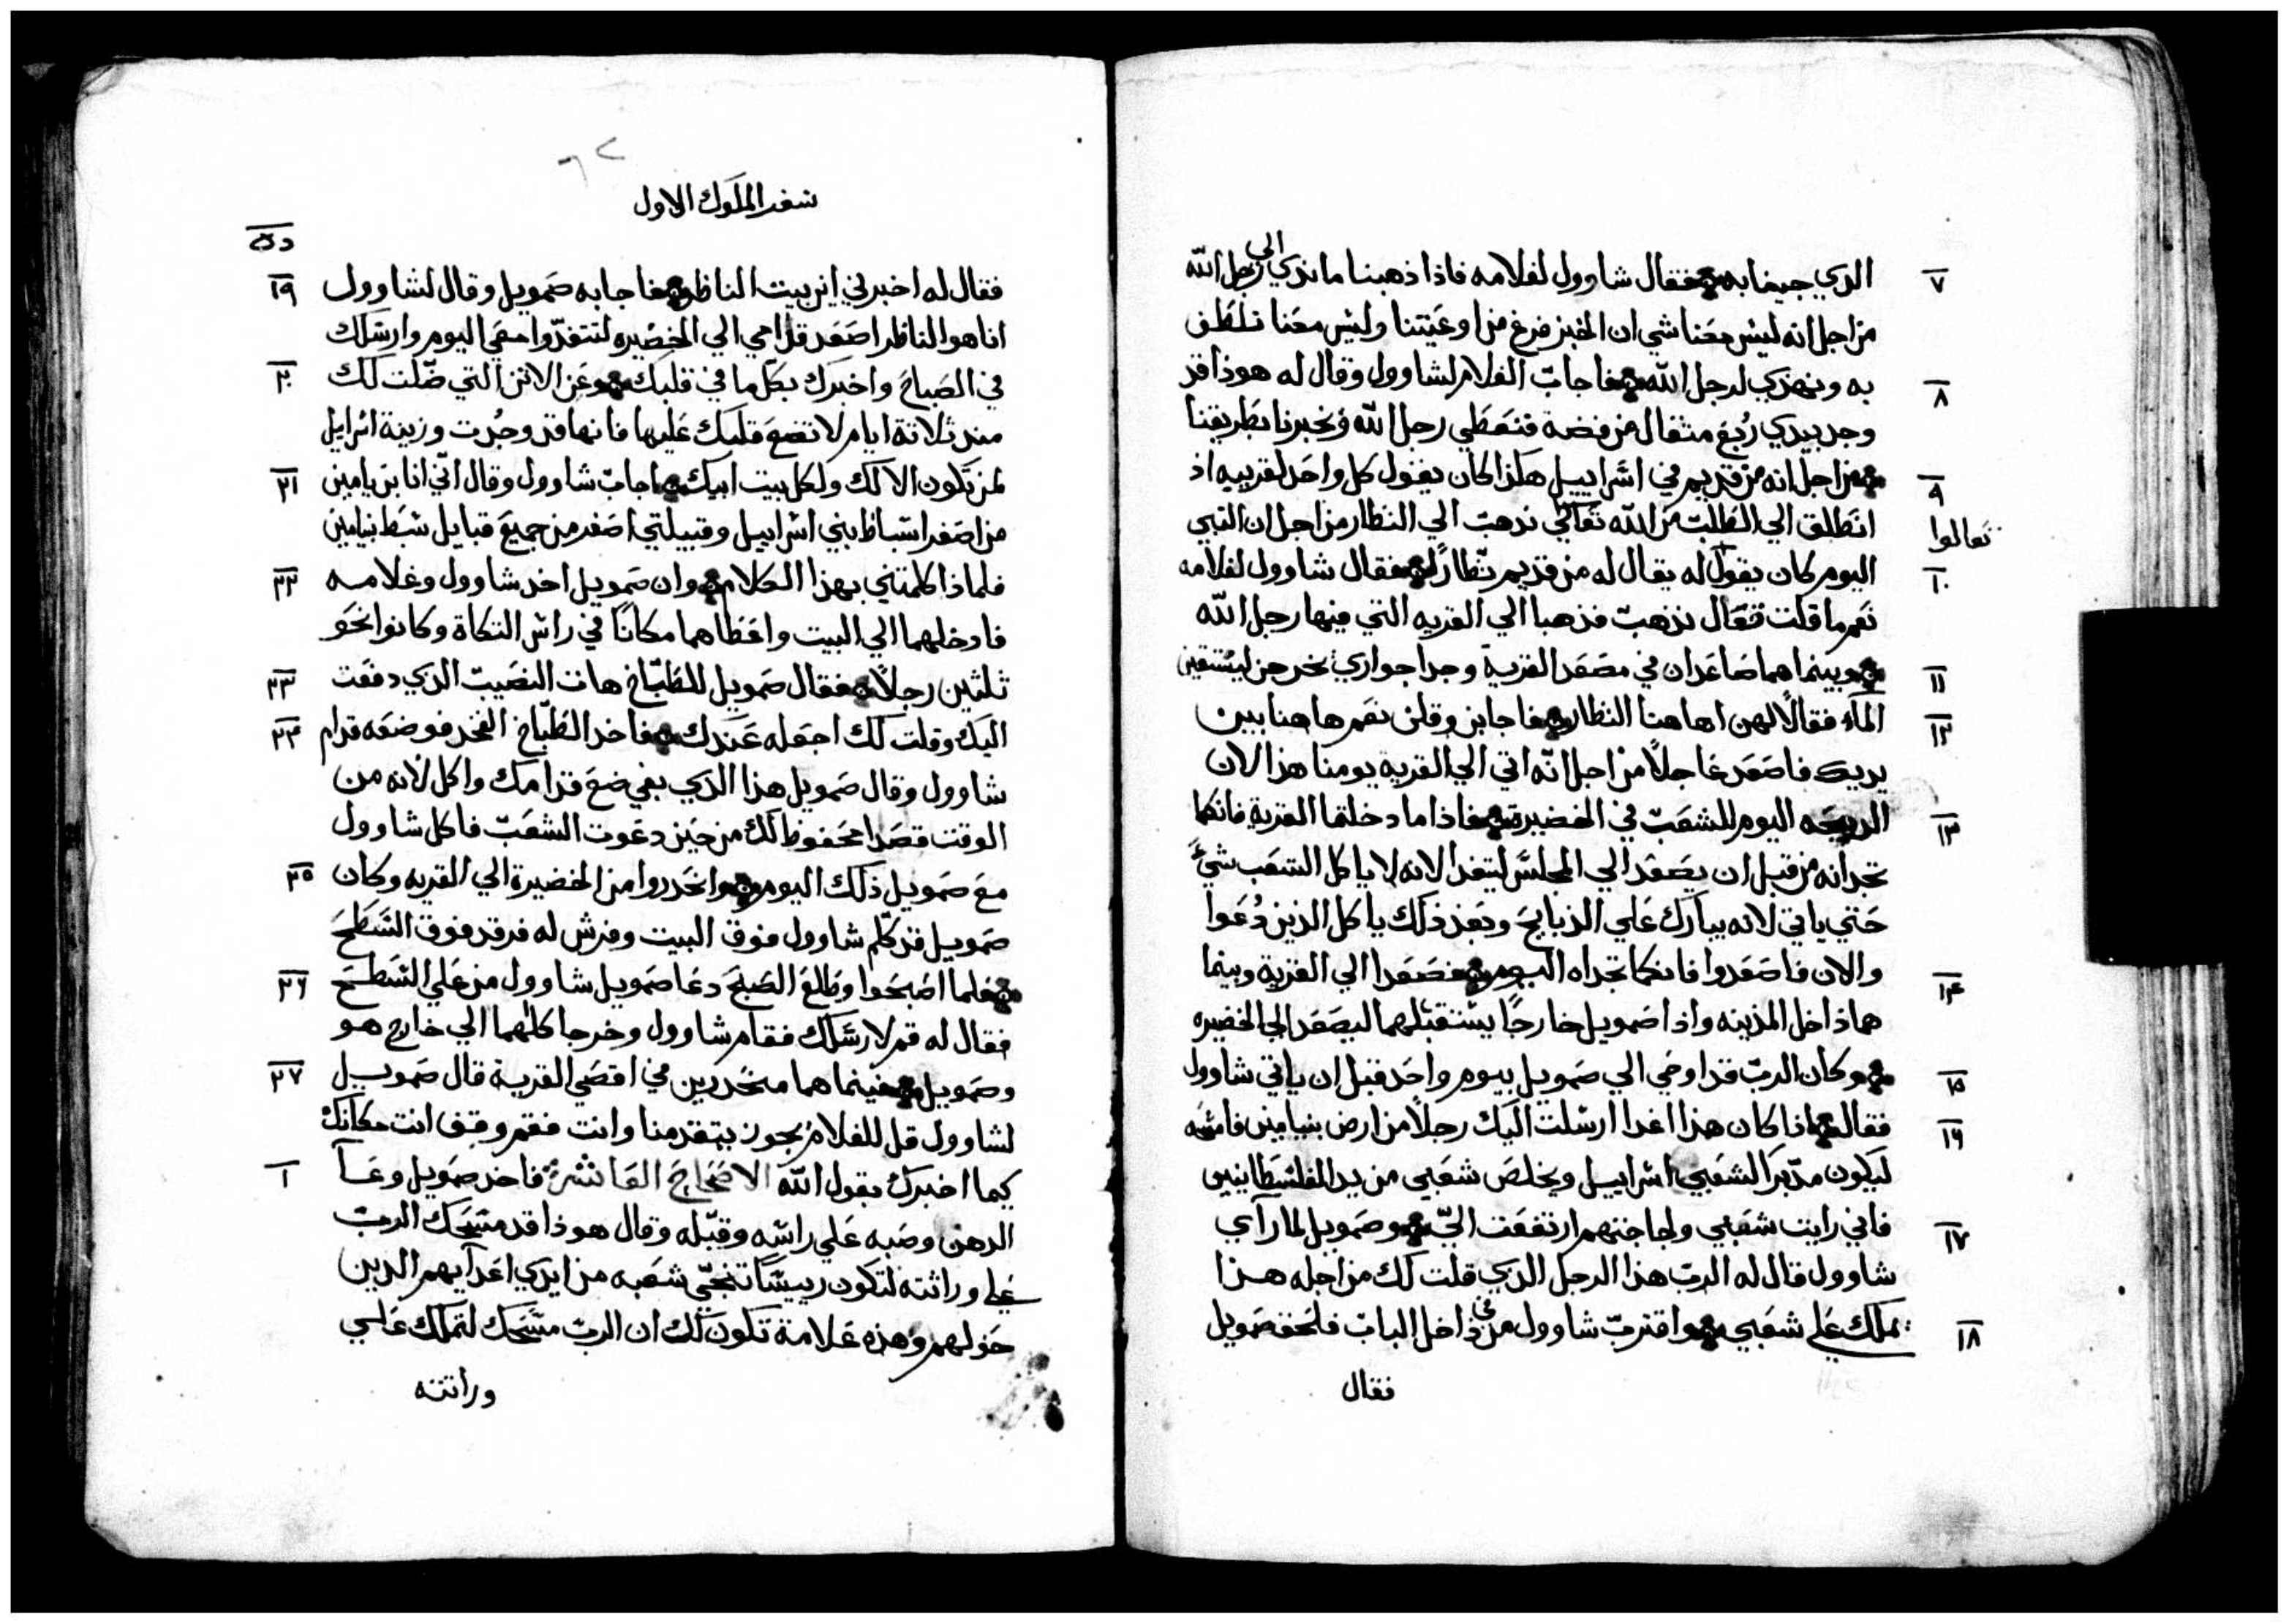 الدي جينا به فقال شاوول لغلامه فاذا ذهبنا ما نذي الي رجل الله
٧
من اجل انه ليس معنا شي ان الخبز فرغ من اوعيتنا وليس معنا نلطف
به ونهدي لرجل الله فاجاب الغلام لشاوول وقال له هوذا قد
٨
وجد بيدي ربع متقال من فضة فنعطي رجل الله ويخبرنا بطريقنا
من اجل انه من قديم في اسراييل هكذا كان يقول كل واحد لقريبه اذ
٩
انطلق الي الطلبت من الله تعالي نذهب الي النظار من اجل ان النبي
تعالوا
اليوم كان يقول له يقال له من قديم نظارا فقال شاوول لغلامه
١٠
نعم ما قلت فتعال نذهب فذهبا الي القريه التي فيها رجل الله
وبينما هما صاعدان في مصعد القرية وجدا جواري يخرجن ليستقين
١١
المآء فقالا لهن اهاهنا النظار فاجابن وقلن نعم هاهنا بين
١٢
يديك فاصعد عاجلا من اجل انه اتي الي القرية يومنا هذا لان
الدبيحه اليوم للشعب في الخضيرة فاذا ما دخلتما القرية فانكما
١٣
تجدانه من قبل ان يصعد الي المجلس ليتغدا لانه لا ياكل الشعب شيء
حتي ياتي لانه يبارك علي الذبايح وبعد ذلك ياكل الذين دعوا
والان فاصعدوا فانكما تجداه اليوم فصعدا الي القرية وبينما
١٤
هما داخل المدينه واذا صمويل خارجا يستقبلهما ليصعد الي الخضيره
وكان الرب قد اوحي الي صمويل بيوم واحد قبل ان ياتي شاوول
١٥
فقال اذا كان هذا اغدا ارسلت اليك رجلا من ارض بنيامين فامسحه
١٦
ليكون مدبرا لشعبي اسراييل ويخلص شعبي من يد الفلسطانيين
فاني رايت شعبي ولجاجتهم ارتفعت الي وصمويل لما راي
١٧
شاوول قال له الرب هذا الرجل الدي قلت لك من اجله هذا
يملك علي شعبي واقترب شاوول من في داخل الباب فلحق صمويل
١٨
فقال
سفر الملوك الاول
فقال له اخبرني اين بيت الناظر فاجابه صمويل وقال لشاوول
١٩
انا هو الناظر اصعد قدامي الي الخضيره لتتغدوا معي اليوم وارسلك
في الصباح واخبرك بكل ما في قلبك وعن الاتن التي ضلت لك
٢٠
مند ثلاتة ايام لا تضع قلبك عليها فانها قد وجدت وزينة اسرايل
لمن تكون الا لك ولكل بيت ابيك اجاب شاوول وقال اني انا بن يامين
٢١
من اصغر اسباط بني اسراييل وقبيلتي اصغر من جميع قبايل سبط بنيامين
فلماذا كلمتني بهذا الكلام وان صمويل اخد شاوول وغلامه
٢٢
فادخلهما الي البيت واعطاهما مكانا في راس التكاة وكانوا نحو
ثلثين رجلا فقال صمويل للطباخ هات النصيب الذي دفعت
٢٣
اليك وقلت لك اجعله عندك فاخد الطباخ الفخد فوضعه قدام
٢٤
شاوول وقال صمويل هذا الذي بقي ضع قدامك واكل لانه من
الوقت قصدا محفوظ لك من حين دعوت الشعب فاكل شاوول
مع صمويل ذلك اليوم وانحدروا من الخضيرة الي القريه وكان
٢٥
صمويل قد كلم شاوول فوق البيت وفرش له فرقد فوق السطح
فلما اصبحوا وطلع الصبح دعا صمويل شاوول من علي السطح
٢٦
فقال له قم لارسلك فقام شاوول وخرجا كلهما الي خارج هو
وصمويل فبينما هما منحدرين في اقصي القرية قال صمويل
٢٧
لشاوول قل للغلام يجوز يتقدمنا وانت فقم وقف انت مكانك
كيما اخبرك بقول الله الاصحاح العاشر فاخد صمويل وعآ
١
الدهن وصبه علي راسه وقبله وقال هوذا قد مسحك الرب
علي وراثته لتكون رييسا تنجي شعبه من ايدي اعدآيهم الدين
حولهم وهذه علامة تكون لك ان الرب مسحك لتملك علي
وراثته